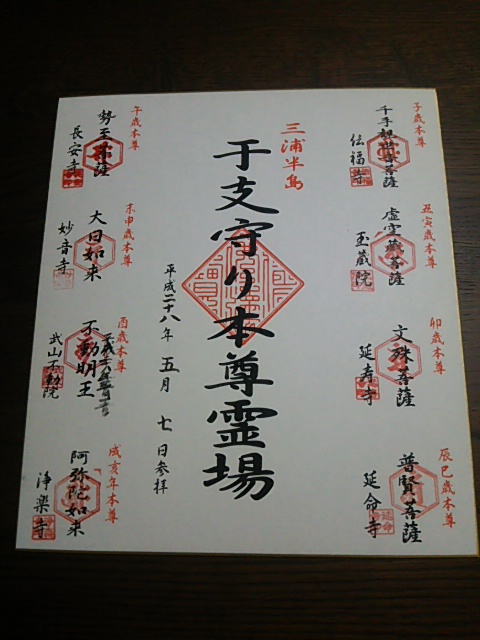 三浦半島
干支守り本尊霊場
平成二十八年 五月 七日参拝
子歳本尊
千手観世音菩薩
伝福寺
丑寅歳本尊
虚空蔵菩薩
玉蔵院
卯歳本尊
文殊菩薩
延寿寺
辰巳歳本尊
普賢菩薩
延命寺
午歳本尊
勢至菩薩
長安寺
未申歳本尊
大日如来
妙音寺
酉歳本尊
不動明王
武山不動院
戌亥年本尊
阿弥陀如来
浄楽寺